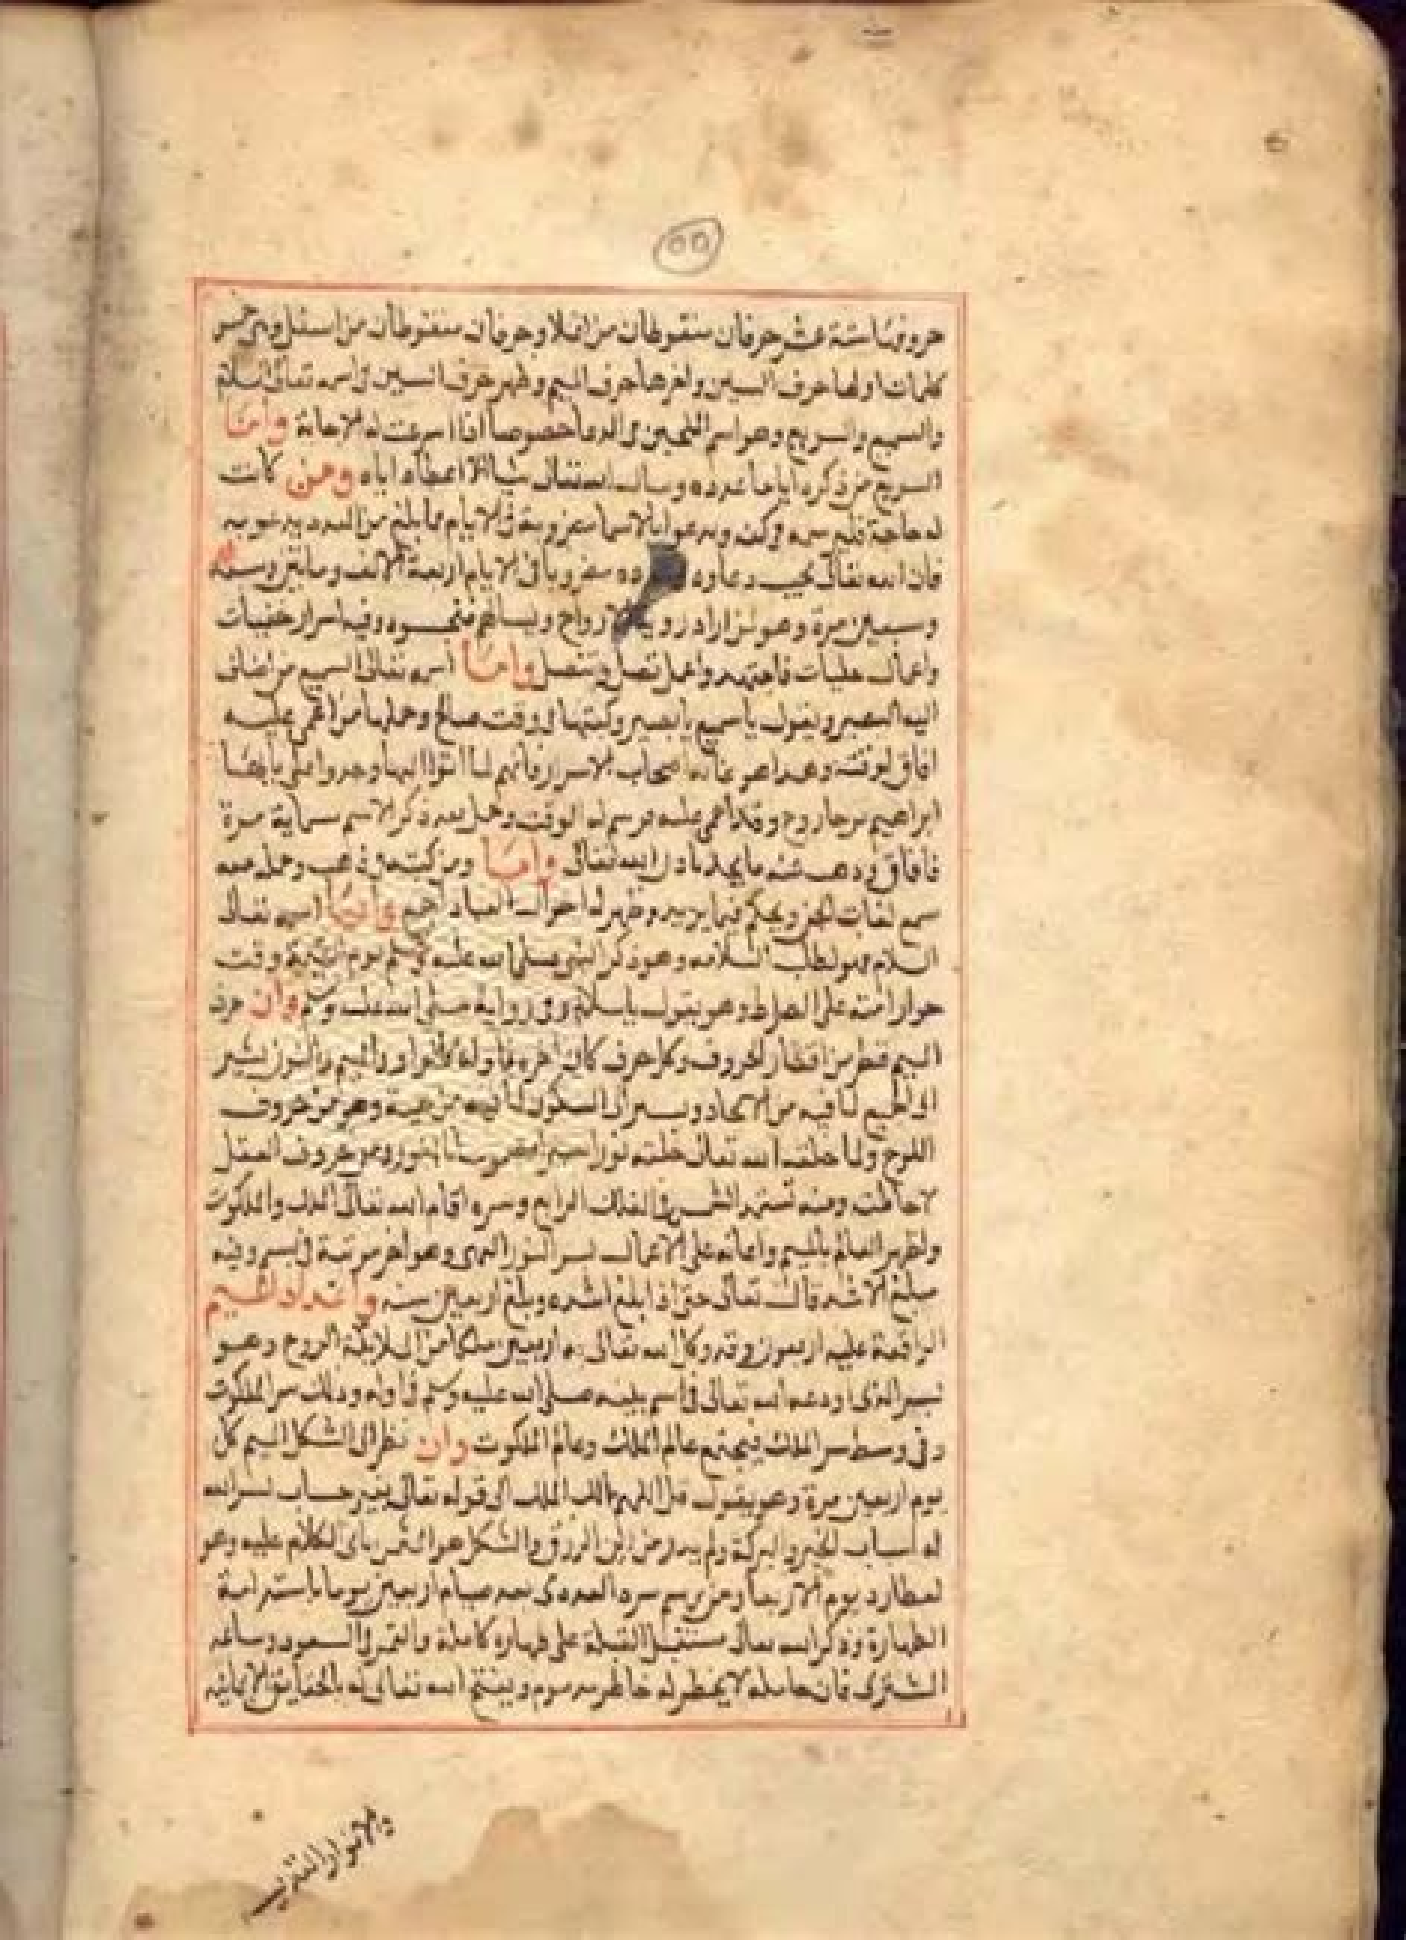 ٥٥
حروفها ستة عشر حرفان منقوطان من اعلا وحرفان منقوطان من اسفل وهي خمس
كلمات اولها حرف السين واخرها حرف الميم وظهر حرف السين في اسمه تعالى السلام
والسميع والسريع وهو اسم في الدعا خصوصا اذا اسرعت له الاجابة واما
السريع من ذكره اياما عدده وسال الله تعالى شيا الا اعطاه اياه ومن كانت
له حاجة ويدعوا بالاسما مضروبة في الايام فما بلغ من العدد يدعو به
فان الله تعالى يجيب دعاوه مضروبا في الايام اربعة الاف ومايتين
وسبعين مرة وهو لمن اراد روية الارواح وفيه اسرار خفيات
واعمال جليات فاجتهد واعمل تصل وتتصل واما اسمه تعالى السميع من اضاف
اليه البصير ويقول يا سميع يا بصير وكتبها في وقت صالح وحملها من اغمي عليه
افاق لوقته اصحاب الاسرار فانهم لما اتوا اليها وجدوا
ابراهيم وقد اغمي عليه فرسم له الوقت وحمل بعد ذكر الاسم مرة
فافاق وذهب عنه ما يجد باذن الله تعالى واما ومن كتبه في وحمله معه
سمع لغات الجن ويحكم فيما يريد وظهر له احوال العباد اجمع واما اسمه تعالى
السلام فهو لطلب السلامة وهو ذكر النبي صلى الله عليه وسلم يوم القيمة وقت
جواز امته على الصراط وهو يقول يا سلام وفي رواية صلى الله عليه وسلم وان حرف
الميم قطر من اقطار الحروف وكل حرف كان اخره فاوله كالواو والميم والنون تشير
الى الجمع لما فيه من الاتحاد ويسير الى السكون لما فيه من وهو من حروف
اللوح ولما خلقه الله تعالى خلقه نورا وهو من حروف العقل
لاحاطته ومنه تستمد الشمس في الفلك الرابع وسره اقام الله تعالى الملك والملكوت
واظهر العالم بالميم واعانه على الاعمال وهو اخر مرتبة في بسم وفيه
مبلغ الاشد قال تعالى حتى اذا بلغ اشده وبلغ اربعين سنة واعداد الميم
الواقعة عليه اربعون وقد وكل الله تعالى به اربعين ملكا من ملايكة الروح وهو
الذي اودعه الله تعالى في اسم نبيه صلى الله عليه وسلم في اوله وذلك سر الملكوت
وفي وسطه سر الملك فيجتمع عالم الملك وعالم الملكوت وان نظر الى الشكل الميم كل
يوم اربعين مرة وهو يقول قل اللهم مالك الملك الى قوله تعالى بغير حساب يسر الله
له اسباب الخير والبركة من اين الرزق والشكل الكلام عليه وهو
لعطارد يوم الاربعا ومن يرسم سره العددي بعد صيام اربعين يوما باستدامة
الطهارة وذكر الله تعالى مستقبل القبلة على طهارة كاملة والقمر في السعود وساعة
المشترى فان حامله لا يخطر له خاطر ويفتح الله تعالى له بالحقايق الايمانية
والانوار القدسية